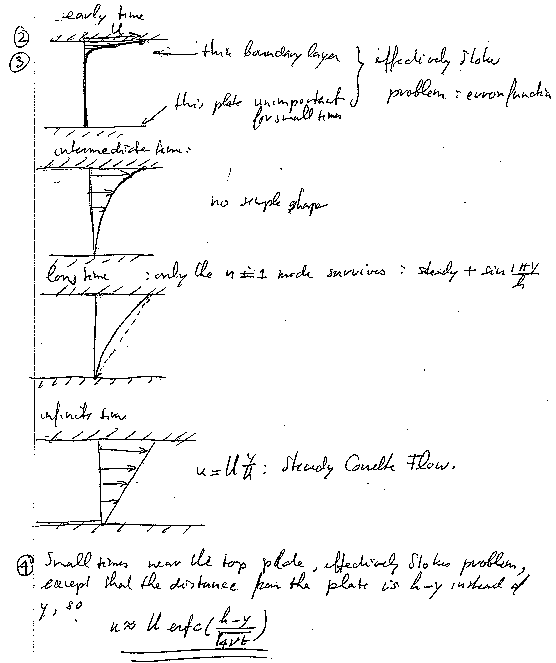 early time
② U
③ thin boundary layer } effectively Stokes
problem : error function
this plate unimportant
for small times
intermediate time:
no simple shape
long time : only the n=1 mode survives : steady + sin 1πy/h
infinite time
u = U y/h : Steady Couette Flow.
④ Small times near the top plate, effectively Stokes problem,
except that the distance from the plate is h-y instead of
y, so
u ≈ U erfc(h-y/√4νt)